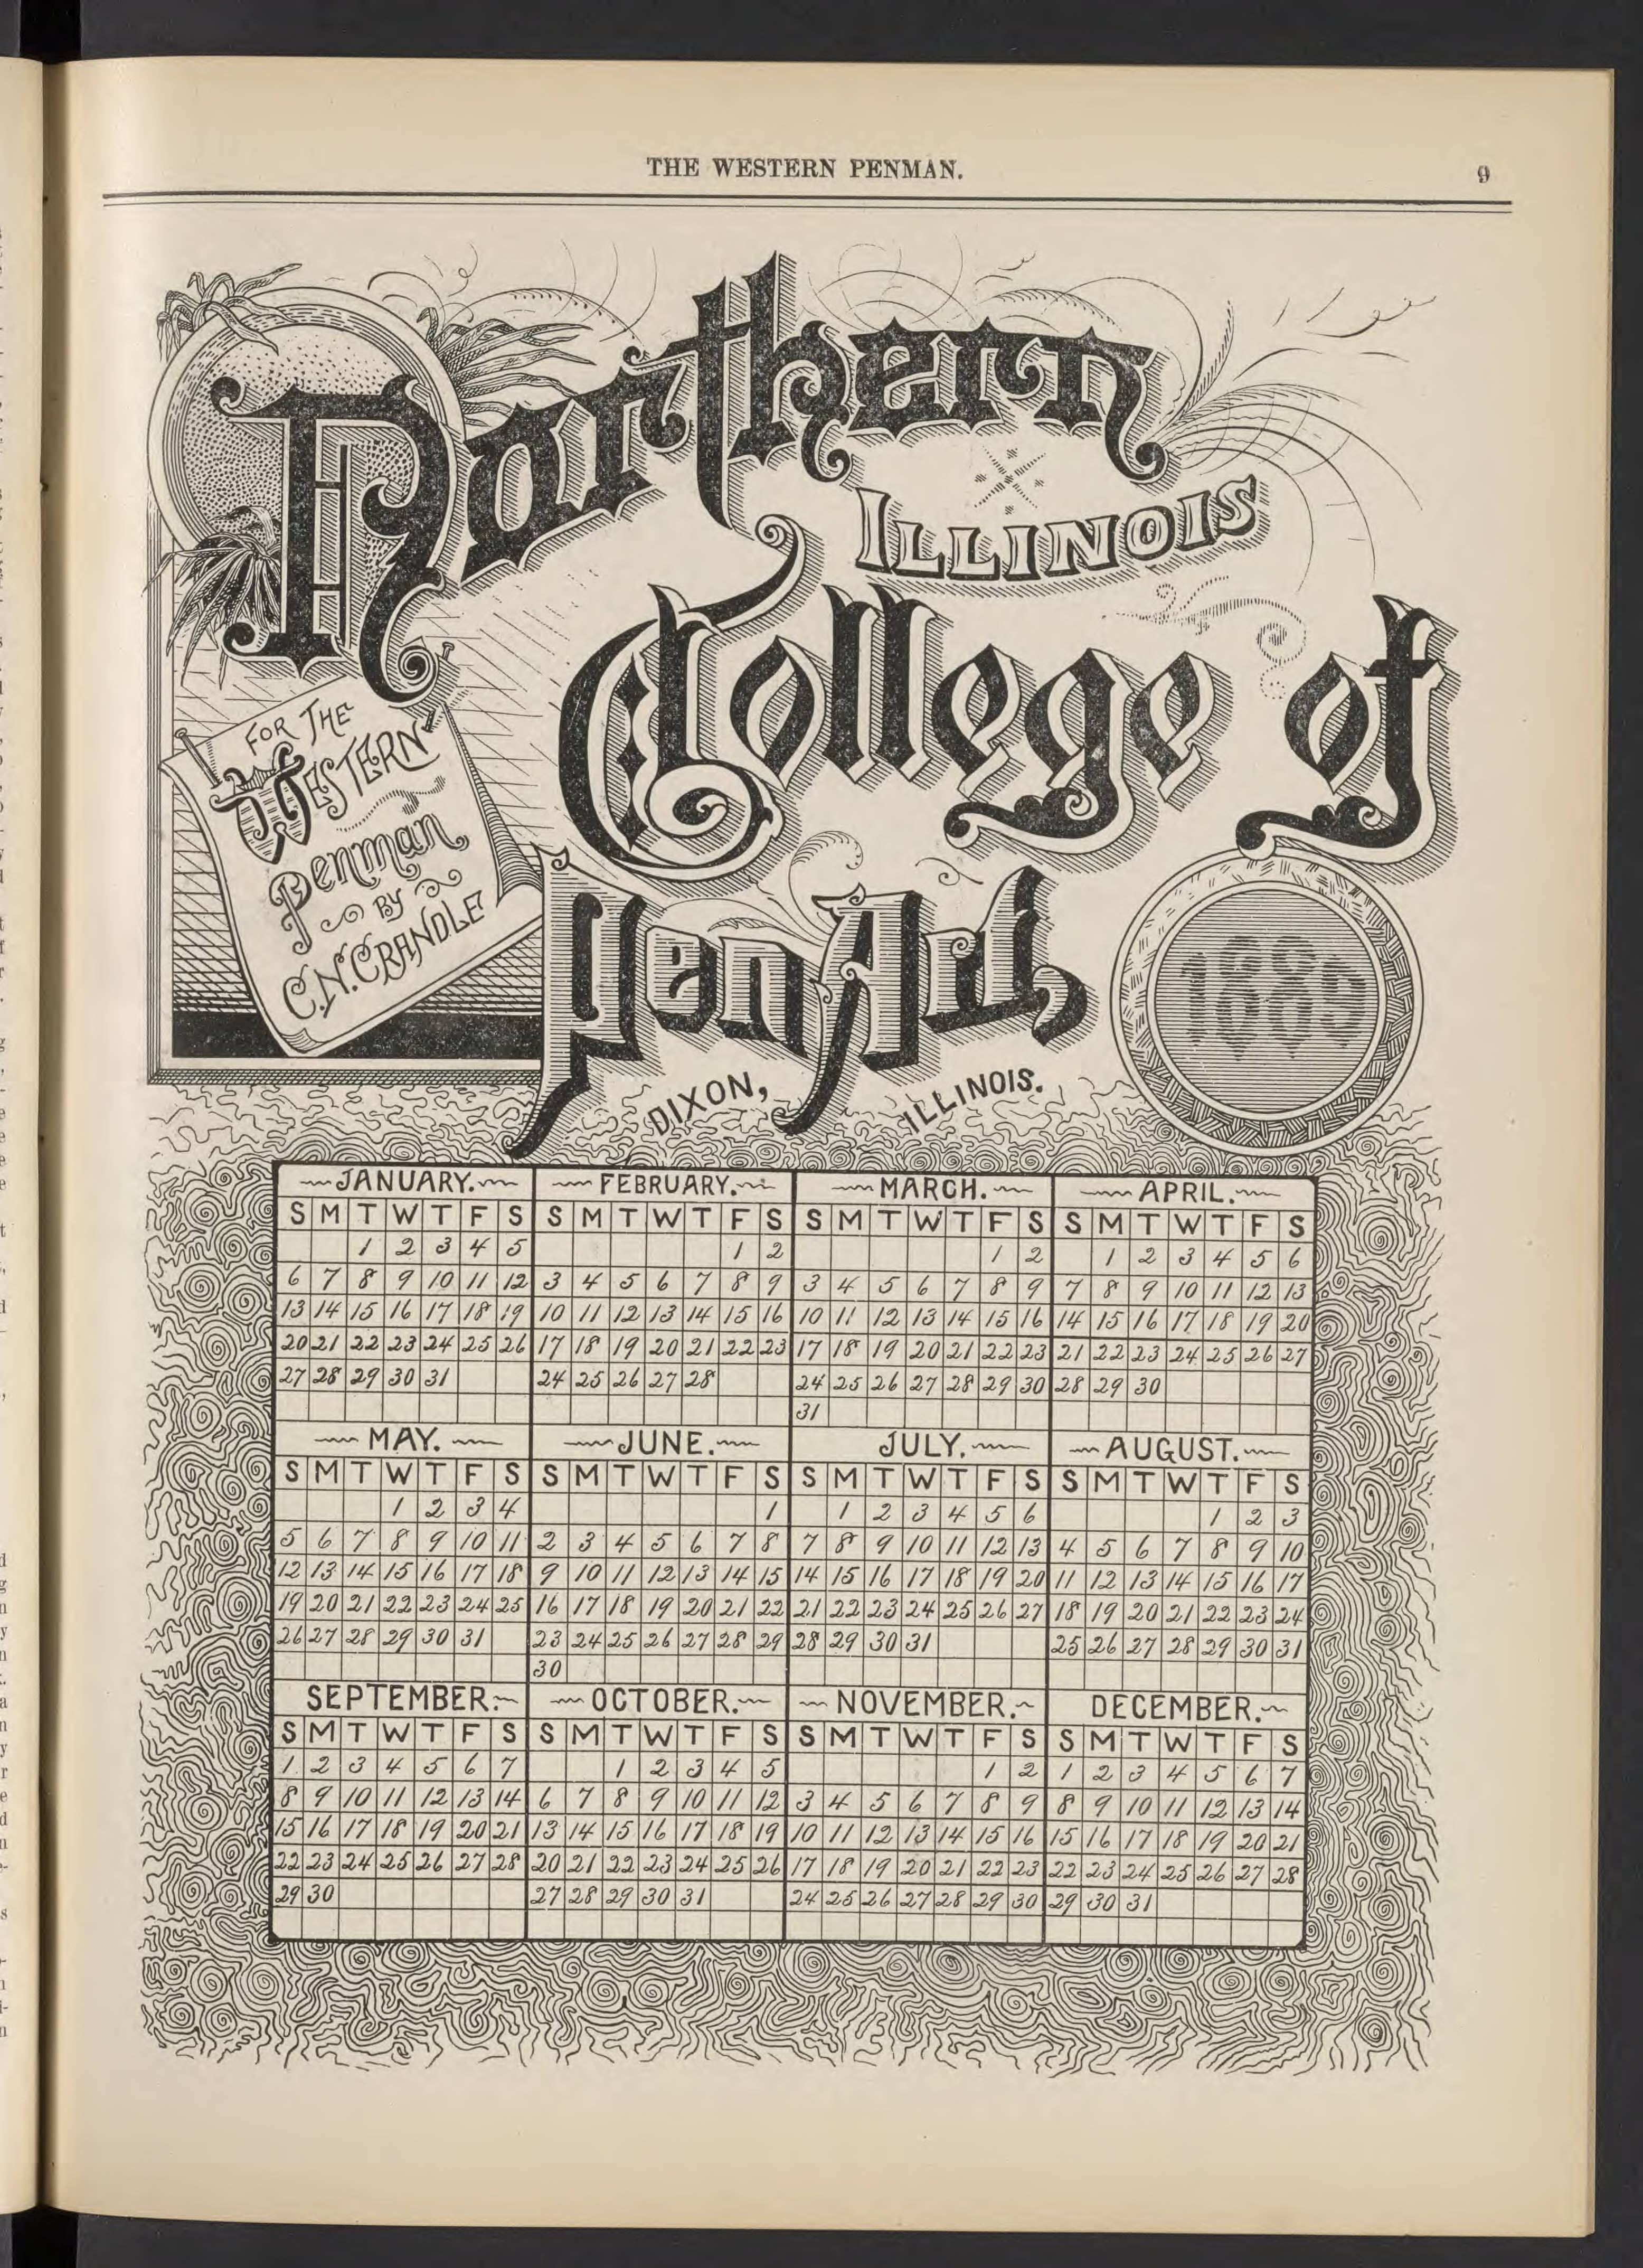 THE WESTERN PENMAN.
9
Northern
ILLINOIS
College of
Pen Art,
DIXON, ILLINOIS.
FOR THE
WESTERN
Penman
BY
C.N. CRANDLE
1889
JANUARY. FEBRUARY. MARCH. APRIL.
S M T W T F S S M T W T F S S M T W T F S S M T W T F S
1 2 3 4 5 1 2 1 2 1 2 3 4 5 6
6 7 8 9 10 11 12 3 4 5 6 7 8 9 3 4 5 6 7 8 9 7 8 9 10 11 12 13
13 14 15 16 17 18 19 10 11 12 13 14 15 16 10 11 12 13 14 15 16 14 15 16 17 18 19 20
20 21 22 23 24 25 26 17 18 19 20 21 22 23 17 18 19 20 21 22 23 21 22 23 24 25 26 27
27 28 29 30 31 24 25 26 27 28 24 25 26 27 28 29 30 28 29 30
31
MAY. JUNE. JULY. AUGUST.
S M T W T F S S M T W T F S S M T W T F S S M T W T F S
1 2 3 4 1 1 2 3 4 5 6 1 2 3
5 6 7 8 9 10 11 2 3 4 5 6 7 8 7 8 9 10 11 12 13 4 5 6 7 8 9 10
12 13 14 15 16 17 18 9 10 11 12 13 14 15 14 15 16 17 18 19 20 11 12 13 14 15 16 17
19 20 21 22 23 24 25 16 17 18 19 20 21 22 21 22 23 24 25 26 27 18 19 20 21 22 23 24
26 27 28 29 30 31 23 24 25 26 27 28 29 28 29 30 31 25 26 27 28 29 30 31
30
SEPTEMBER. OCTOBER. NOVEMBER. DECEMBER.
S M T W T F S S M T W T F S S M T W T F S S M T W T F S
1 2 3 4 5 6 7 1 2 3 4 5 1 2 1 2 3 4 5 6 7
8 9 10 11 12 13 14 6 7 8 9 10 11 12 3 4 5 6 7 8 9 8 9 10 11 12 13 14
15 16 17 18 19 20 21 13 14 15 16 17 18 19 10 11 12 13 14 15 16 15 16 17 18 19 20 21
22 23 24 25 26 27 28 20 21 22 23 24 25 26 17 18 19 20 21 22 23 22 23 24 25 26 27 28
29 30 27 28 29 30 31 24 25 26 27 28 29 30 29 30 31